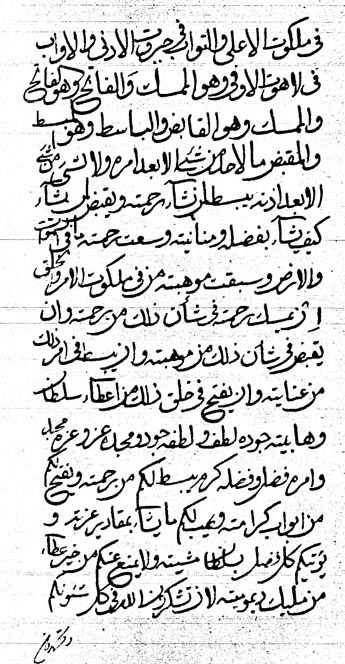 فى ملكوت الاعلى والتواب فى جبروت الادنى والاواب
فى لاهوت الاوفى وهو الممسك والفاتح وهو الفاتح
والممسك وهو القابض والباسط وهو المبسط
والمقبض ما لاحد من شئ الا بعد امره ولا لشئ من شئ
الا بعد اذنه يبسط لمن يشآء برحمته ويقبض لمن يشآء
كيف يشآء بفضله ومنانيته وسعت رحمته ما فى السموات
والارض وسبقت موهبته من فى ملكوت الامر والخلق
ان يمسك رحمة فى شأن ذلك من رحمته وان
يقبض فى شأن ذلك من موهبته وان يبسط فى امر ذلك
من عنايته وان يفتح فى خلق ذلك من اعطآء سلطان
وهابيته جوده لطف ولطفه جود ومجده عز وعزه مجد
وامره فضل وفضله كرم يبسط لكم من رحمته ويفتح لكم
من ابواب كرامته ويهب لكم ما يشآء بمقادير عزته و
يؤتيكم كل فضل بسلطان مشيته ولا يمنع عنكم من خير عطآء
من مليك ديموميته لان تشكرن الله فى كل شئونكم